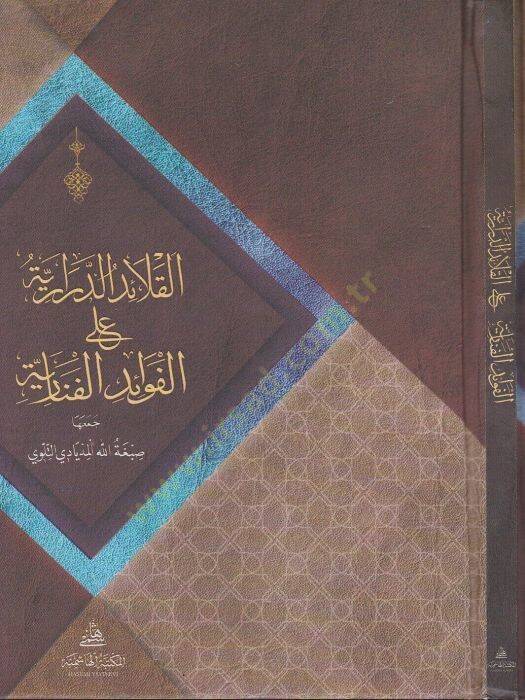 القلائد الدرارية
على
الفوائد الفنارية
جمعها
صبغة الله المديادي التلوي
هاشمي
المكتبة الهاشمية
HAŞİMİ YAYINEVİ
القلائد الدرارية على الفوائد الفنارية
المكتبة الهاشمية